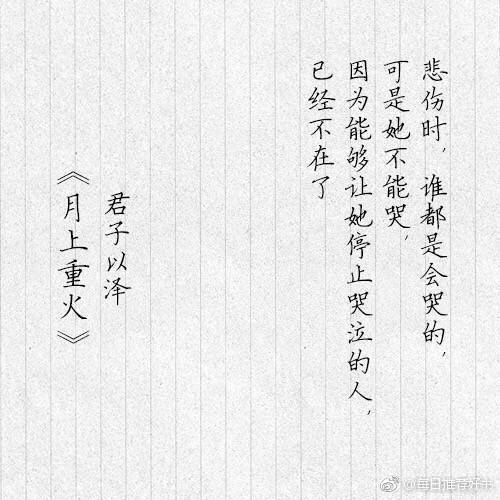 悲伤时,谁都是会哭的,
可是她不能哭,
因为能够让她停止哭泣的人,
已经不在了
君子以泽
《月上重火》
@每日推荐好书